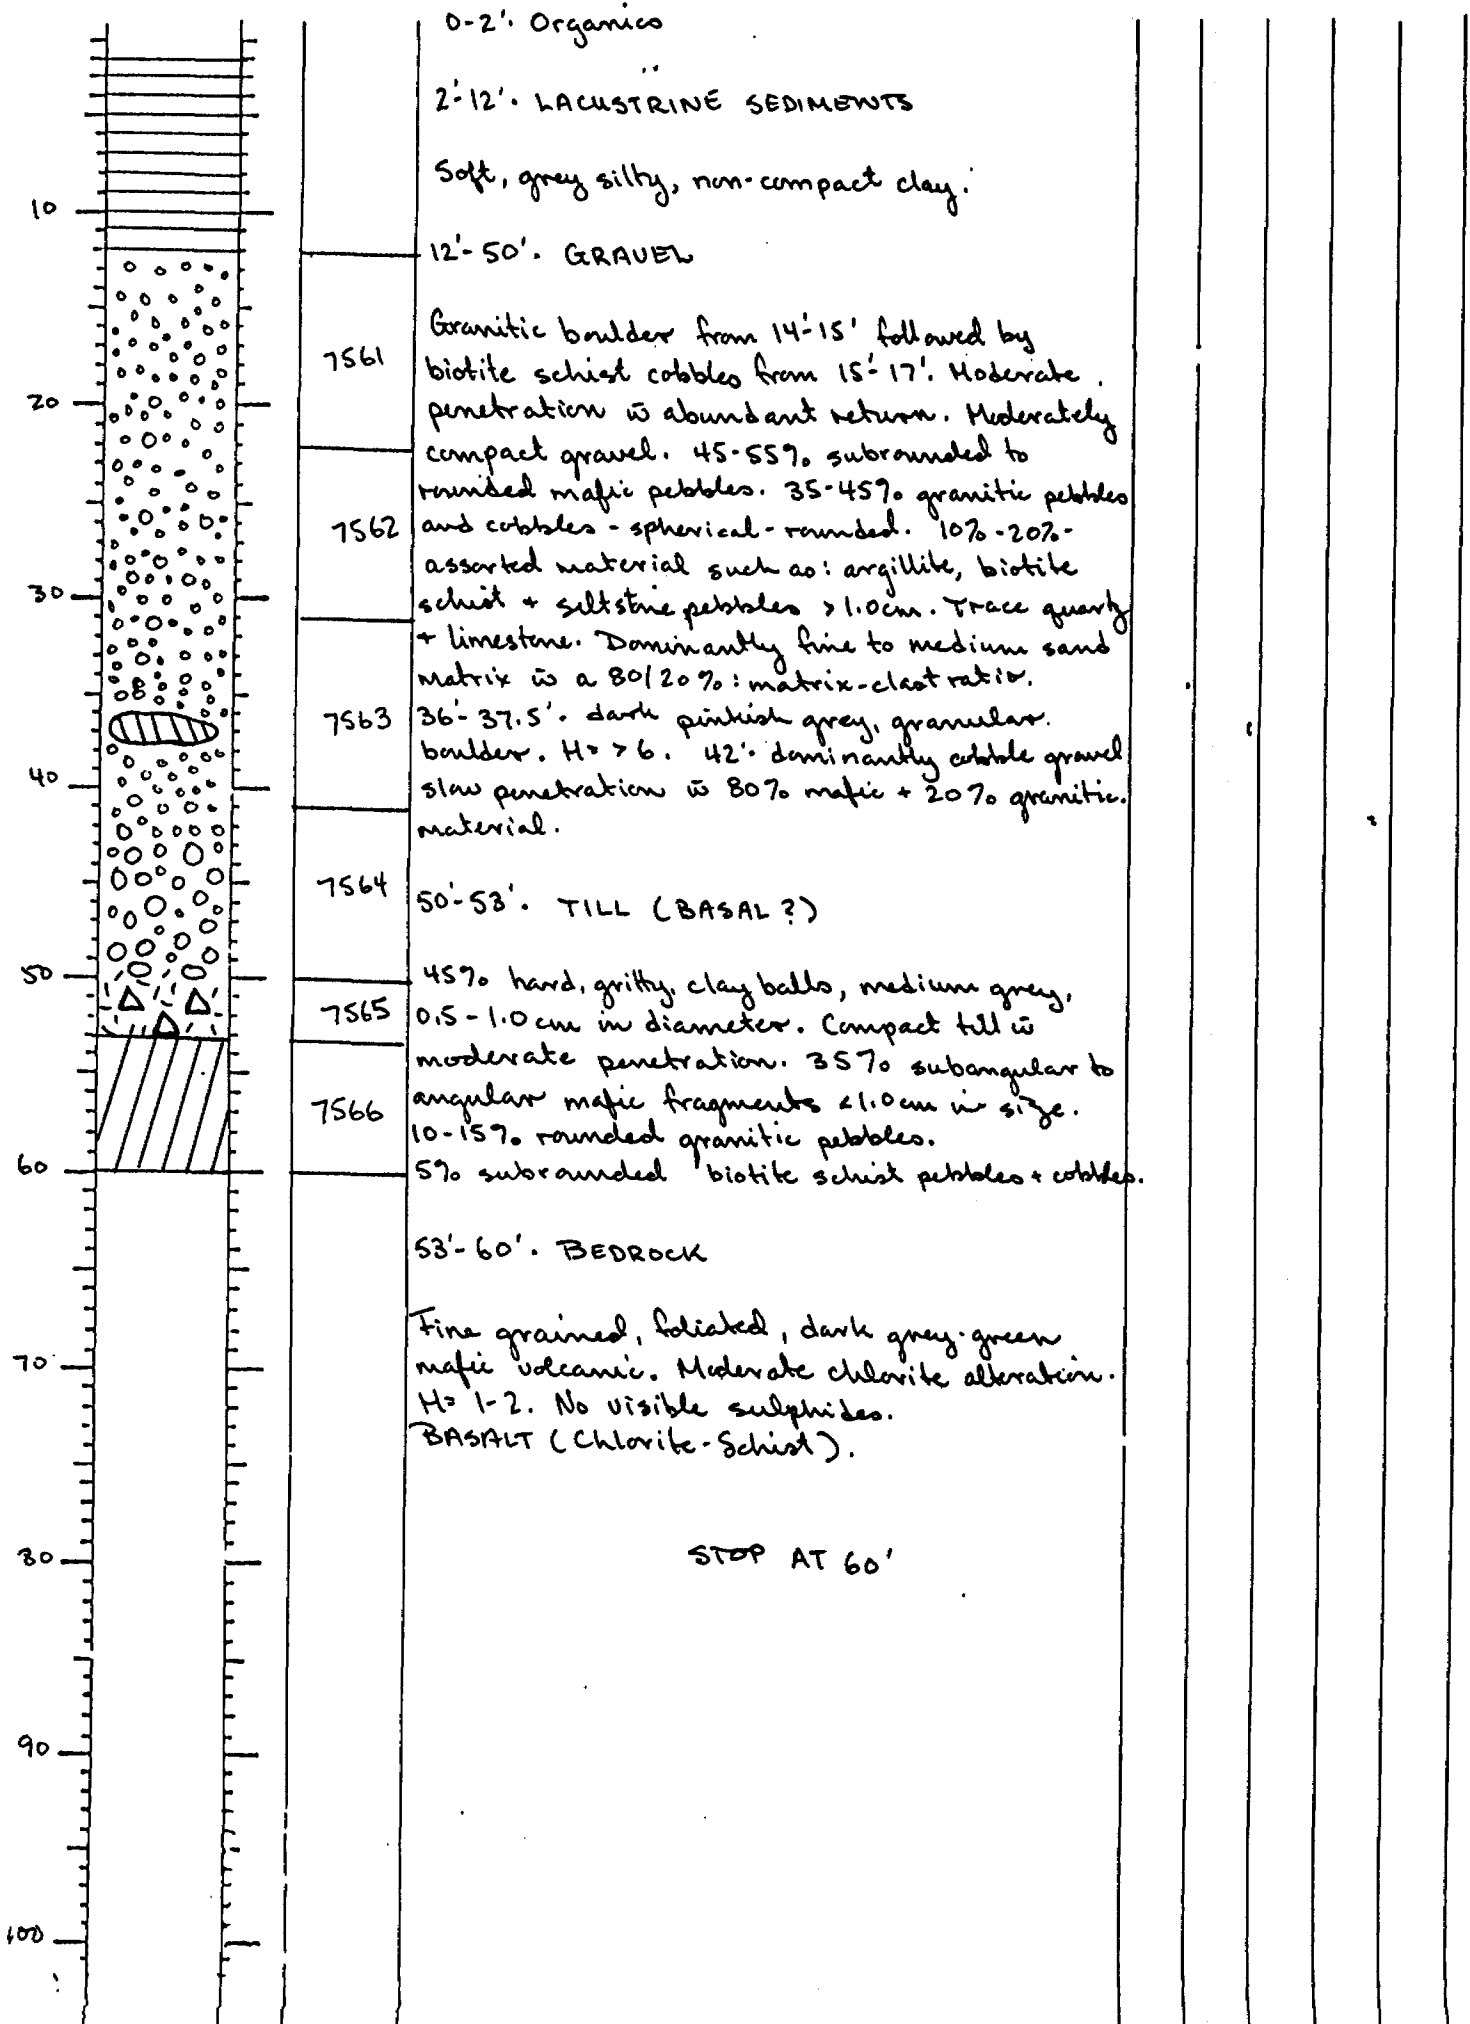 0-2'. Organics
2'-12'. LACUSTRINE SEDIMENTS
Soft, grey silty, non-compact clay.
10
12'-50'. GRAVEL
Granitic boulder from 14'-15' followed by
7561
biotite schist cobbles from 15'-17'. Moderate
20
penetration w̄ abundant return. Moderately
compact gravel. 45-55% subrounded to
rounded mafic pebbles. 35-45% granitic pebbles
7562
and cobbles - spherical - rounded. 10%-20%-
assorted material such as: argillite, biotite
30
schist + siltstone pebbles >1.0cm. Trace quartz
+ limestone. Dominantly fine to medium sand
matrix w̄ a 80/20%: matrix-clast ratio.
7563
36'-37.5'. dark pinkish grey, granular.
boulder. H= >6. 42'. dominantly cobble gravel
40
slow penetration w̄ 80% mafic + 20% granitic.
material.
7564
50'-53'. TILL (BASAL?)
50
45% hard, gritty, clay balls, medium grey,
7565
0.5-1.0cm in diameter. Compact till w̄
moderate penetration. 35% subangular to
7566
angular mafic fragments <1.0cm in size.
10-15% rounded granitic pebbles.
60
5% subrounded biotite schist pebbles + cobbles.
53'-60'. BEDROCK
Fine grained, foliated, dark grey-green
70
mafic volcanic. Moderate chlorite alteration.
H= 1-2. No visible sulphides.
BASALT (Chlorite-Schist).
80
STOP AT 60'
90
100